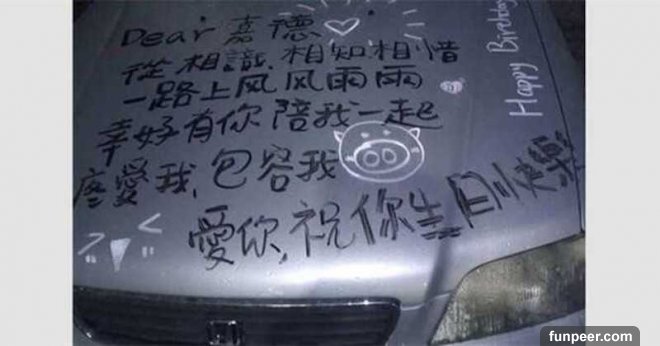 Dear 嘉德
從相識.相知相惜
一路上风风雨雨
幸好有你陪我一起
疼愛我,包容我
愛你,祝你生日快樂
Happy Birthday
funpeer.com